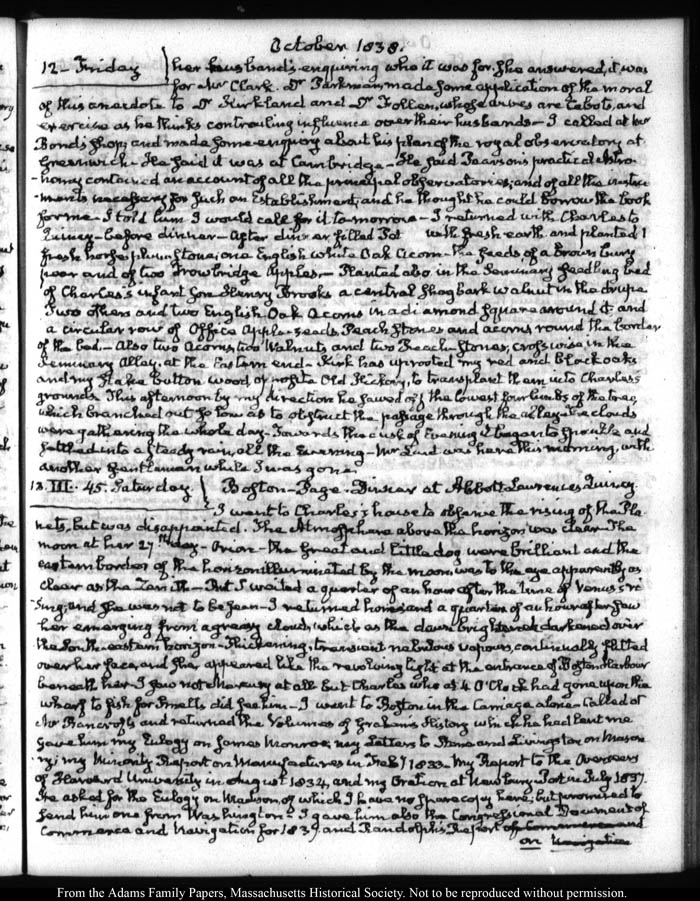 October 1838.
12 - Friday her husband's enquiring who it was for. She answered, it was
for Mr Clark. Dr Parkman made some application of the moral
of this anecdote to Dr Kirkland and Dr Follen, whose wives are Cabots, and
exercise as he thinks controuling influence over their husbands - I called at Mr
Bond's Shop, and made some enquiry about his plan of the royal observatory at
Greenwich - He said it was at Cambridge - He said Pearson's practical Astro-
-nomy contained an account of all the principal observatories, and of all the instru-
-ments necessary for such an Establishment, and he thought he could borrow the book
for me - I told him I would call for it to-morrow - I returned with Charles to
Quincy - before dinner - After dinner filled Pot with fresh earth and planted 1
fresh horse plum stone; one English white Oak Acorn - the seeds of a Brown bury
pear and of two Trowbridge Apples. - Planted also in the Seminary seedling bed
of Charles's infant Son Henry Brooks a central Shagbark walnut in the drupe
Two others and two English Oak Acorns in a diamond square around it and
a circular row of Office Apple-seeds, Peach stones and acorns round the border
of the bed - Also two Acorns, two Walnuts and two Peach-stones, crosswise in the
Seminary Alley, at the Eastern end - Kirk has uprooted my red and Black oaks
and my Button wood opposite Old Hickory, to transplant them into Charles's
grounds. This afternoon by my direction he sawed off the lowest four limbs of the tree,
which branched out so low as to obstruct the passage through the alley. The clouds
were gathering the whole day - Towards the dusk of Evening it began to sprinkle and
settled into a steady rain, all the Evening - Mr Lunt was here this morning, with
another Gentleman while I was gone.
13. III. 45. Saturday Boston - Page. Dinner at Abbott Lawrence's Quincy
I went to Charles's house to observe the rising of the Pla-
nets, but was disappointed. The Atmosphere above the horizon was clear - The
moon at her 27th day - Orion - the Great and Little dog were brilliant and the
eastern border of the horizon illuminated by the moon, was to the eye apparently as
clear as the Zenith - But I waited a quarter of an hour after the time of Venus's ri-
-sing, and she was not to be seen - I returned home and a quarter of an hour after saw
her emerging from a greasy cloud, which as the dawn brightened darkened over
the South-eastern horizon - Thickening, transient nebulous vapours, continually flitted
over her face, and she appeared like the revolving light at the entrance of Boston Harbour
beneath her - I saw not Mercury at all but Charles who at 4 O'Clock had gone upon the
wharf to fish for Smelts did see him - I went to Boston in the Carriage alone - Called at
Mr Bancroft's and returned the Volumes of Graham's History which he had lent me
Gave him my Eulogy on James Monroe, my Letters to Stone and Livingston on Mason-
ry; my Minority Report on Manufactures in Feby 1833. My Report to the Overseers
of Harvard University in August 1834, and my Oration at Newbury Port in July 1837.
He asked for the Eulogy on Madison, of which I have no spare copy here, but promised to
send him one from Washington - I gave him also the Congressional Document of
Commerce and Navigation for 1837 and Randolph's Report of Commerce and
on Navigation
From the Adams Family Papers, Massachusetts Historical Society. Not to be reproduced without permission.